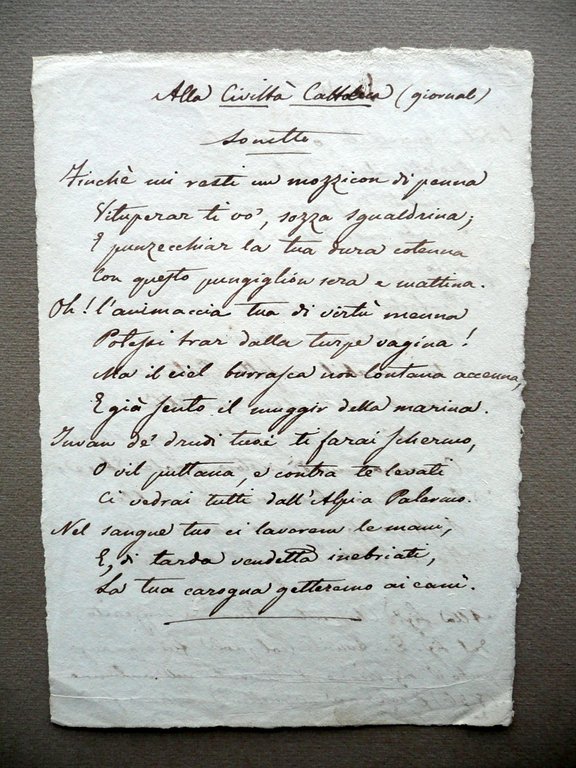 Alla Civiltà Cattolica (giornal)
Sonetto
Finchè mi resti un mozzicon di penna
Vituperar ti vo', sozza sgualdrina;
E punzecchiar la tua dura cotenna
Con questo pungiglión sera e mattina.
Oh! l'animaccia tua di virtù menna
Potessi trar dalla turpe vagina!
Ma il ciel burrasca non lontana accenna,
E già sento il muggir della marina.
Invan de' drudi tuoi ti farai schermo,
O vil puttana, e contra te levati
Ci vedrai tutti dall'Alpi a Palermo.
Nel sangue tuo ci laverem le mani,
E, di tarda vendetta inebriati,
La tua carogna getteremo ai cani.